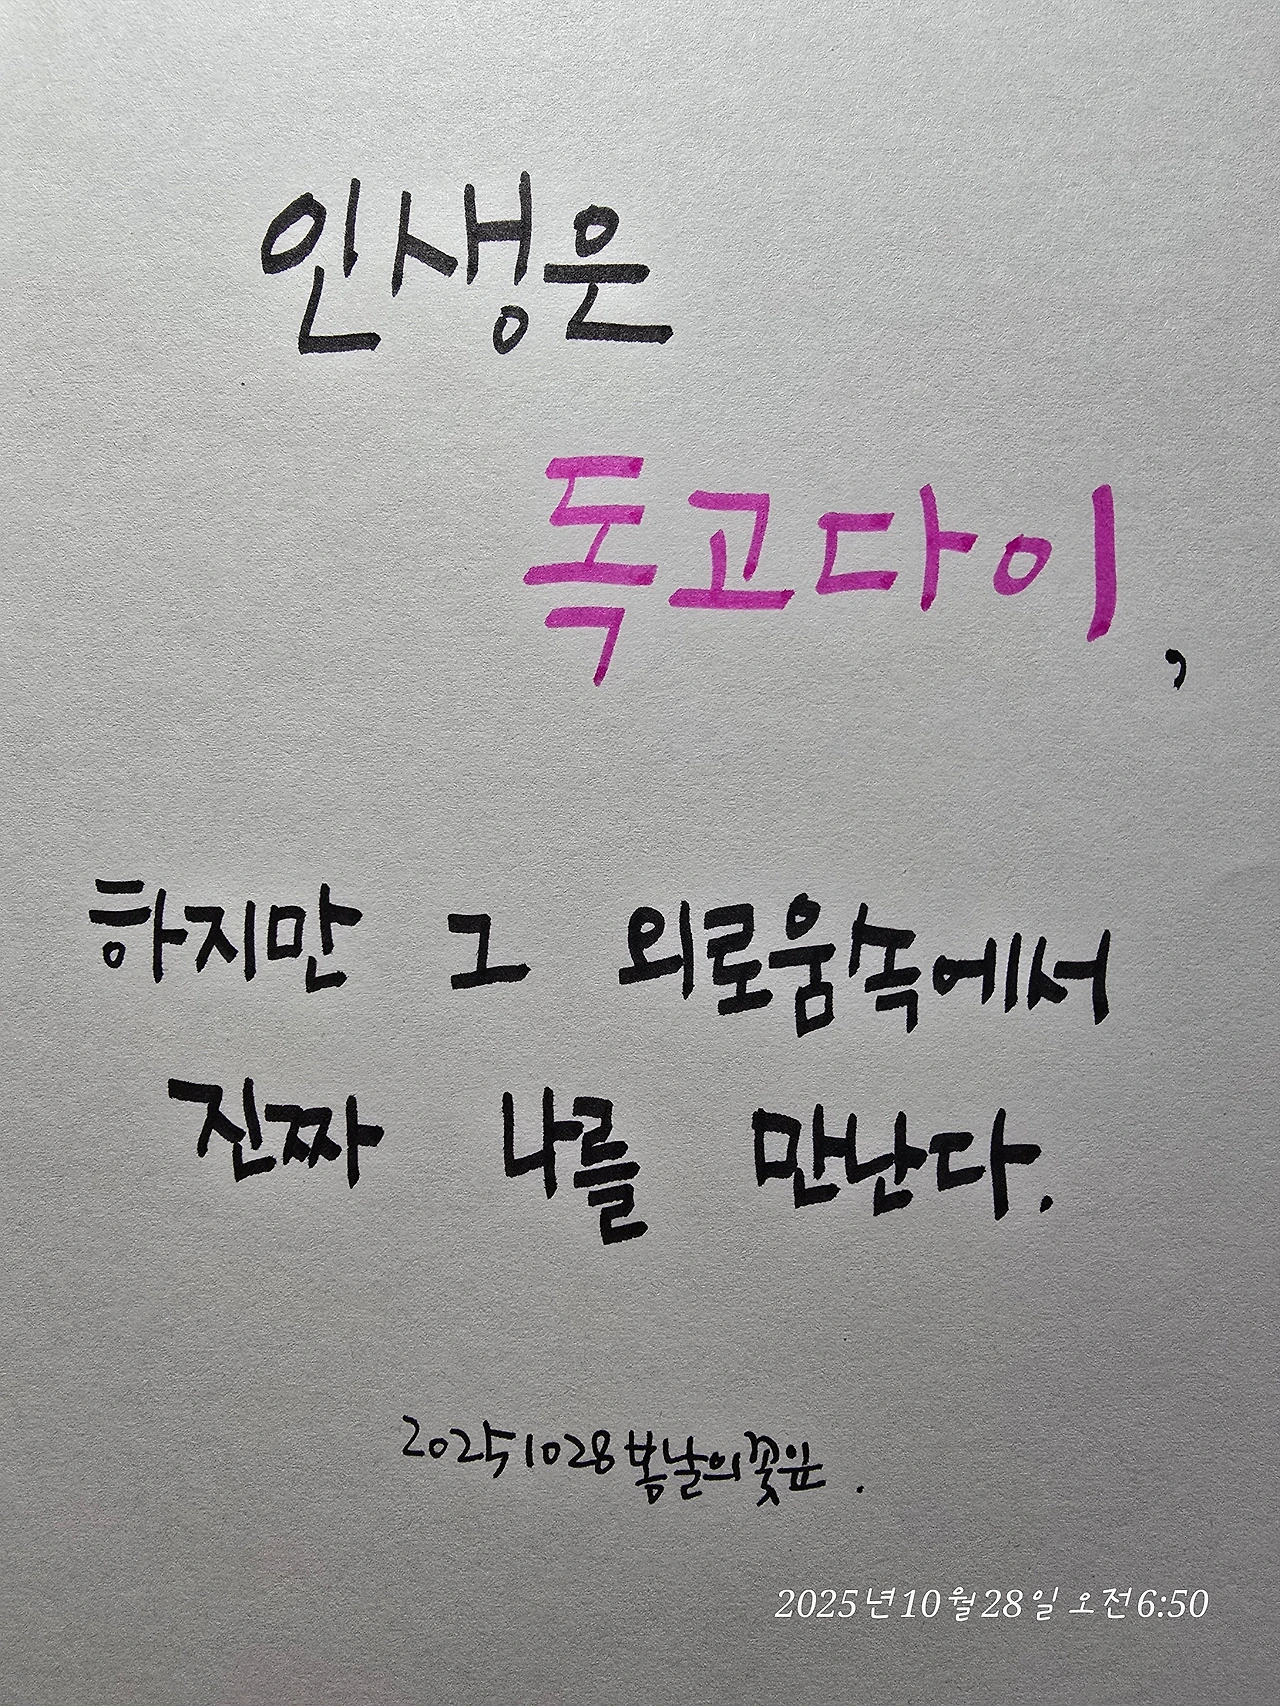 인생은
독고다이,
하지만 그 외로움속에서
진짜 나를 만난다.
20251028 봄날의꽃잎.
2025년10월28일 오전6:50